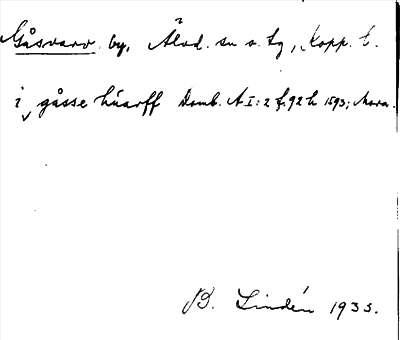 Gåsvarv. by, Älvd. sn o. tg, Kopp. l.
i gåsse húarff Domb. A I:2 f. 92 h 1593; Mora.
B. Lindén 1935.